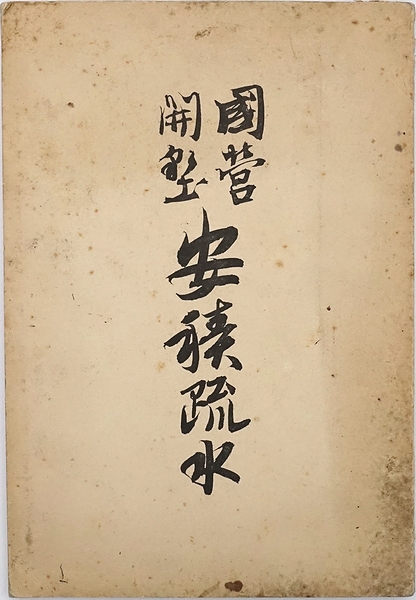 國营
開墾
安積疏水